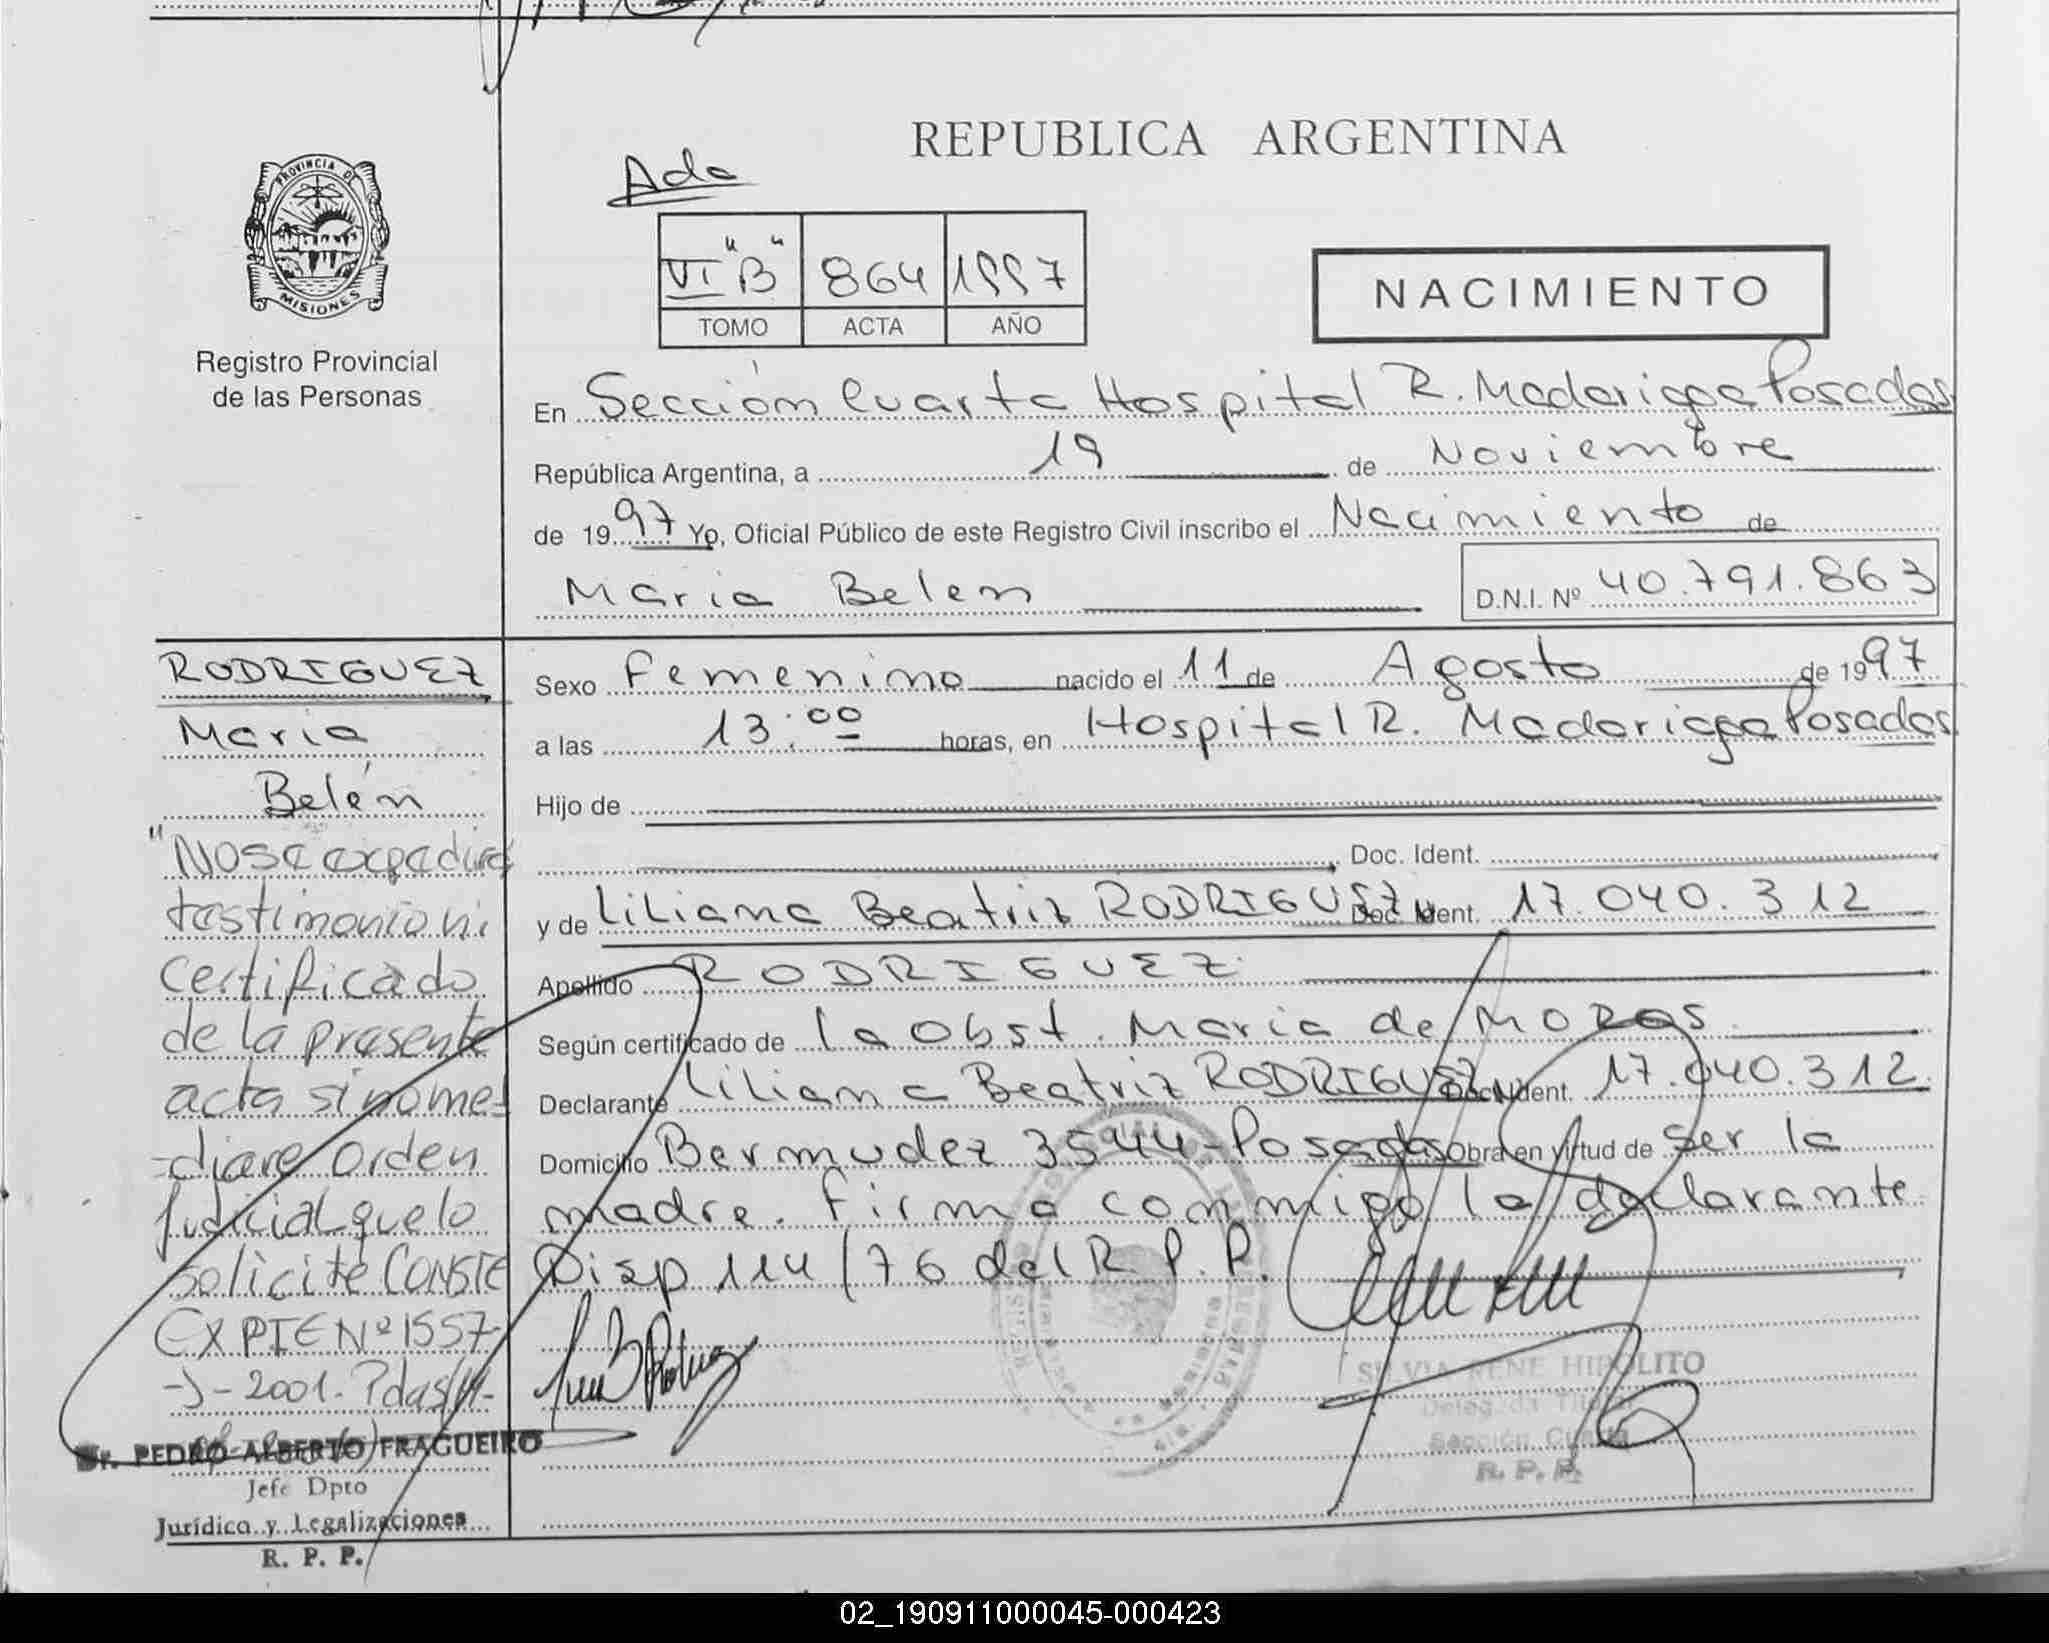 REPUBLICA ARGENTINA
Ada
PROVINCIA DE
MISIONES
Registro Provincial
de las Personas
VI "B" 864 1997
TOMO ACTA AÑO
NACIMIENTO
En Sección Cuarta Hospital R. Madariaga Posadas
República Argentina, a 19 de Noviembre
de 1997 Yo, Oficial Público de este Registro Civil inscribo el Nacimiento de
Maria Belen D.N.I. Nº 40.791.863
RODRIGUEZ
Maria
Belén
"No se expedirá
testimonio ni
certificado
de la presente
acta si no me-
-diare orden
judicial que lo
solicite CONSTE
EXPTE Nº 1557-
-J-2001. Pdas
Dr. PEDRO ALBERTO FRAGUEIRO
Jefe Dpto
Jurídico y Legalizaciones
R. P. P.
Sexo Femenino nacido el 11 de Agosto de 1997
a las 13:00 horas, en Hospital R. Madariaga Posadas
Hijo de
Doc. Ident.
y de Liliana Beatriz RODRIGUEZ Doc. Ident. 17.040.312
Apellido RODRIGUEZ
Según certificado de la Obst. Maria de MOROS
Declarante Liliana Beatriz RODRIGUEZ Doc. Ident. 17.040.312
Domicilio Bermudez 3544-Posadas Obra en virtud de ser la
madre. Firma conmigo la declarante
Disp 114/76 del R.P.P.
SILVIA RENE HIPOLITO
Delegada Titular
Sección Cuarta
R. P. P.
02_190911000045-000423